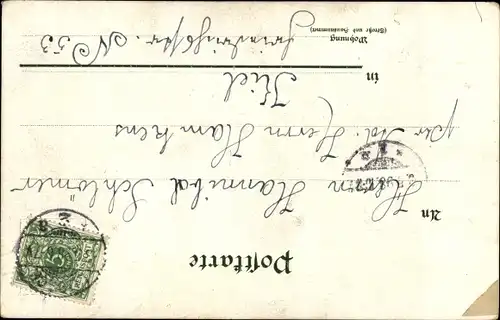 Postkarte
An Herrn Hannibal Schlömer
per Ad. Herrn Hamkens
in Kiel
Wohnung
(Straße und Hausnummer)
No 53